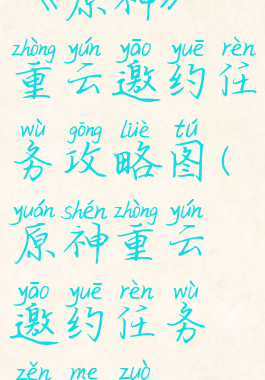 《原神》
zhòng yún yāo yuē rèn
重云邀约任
wù gōng lüè tú
务攻略图(
yuán shén zhòng yún
原神重云
yāo yuē rèn wù
邀约任务
zěn me zuò